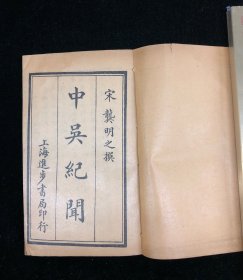 宋 龔明之撰
中吳紀聞
上海進步書局印行